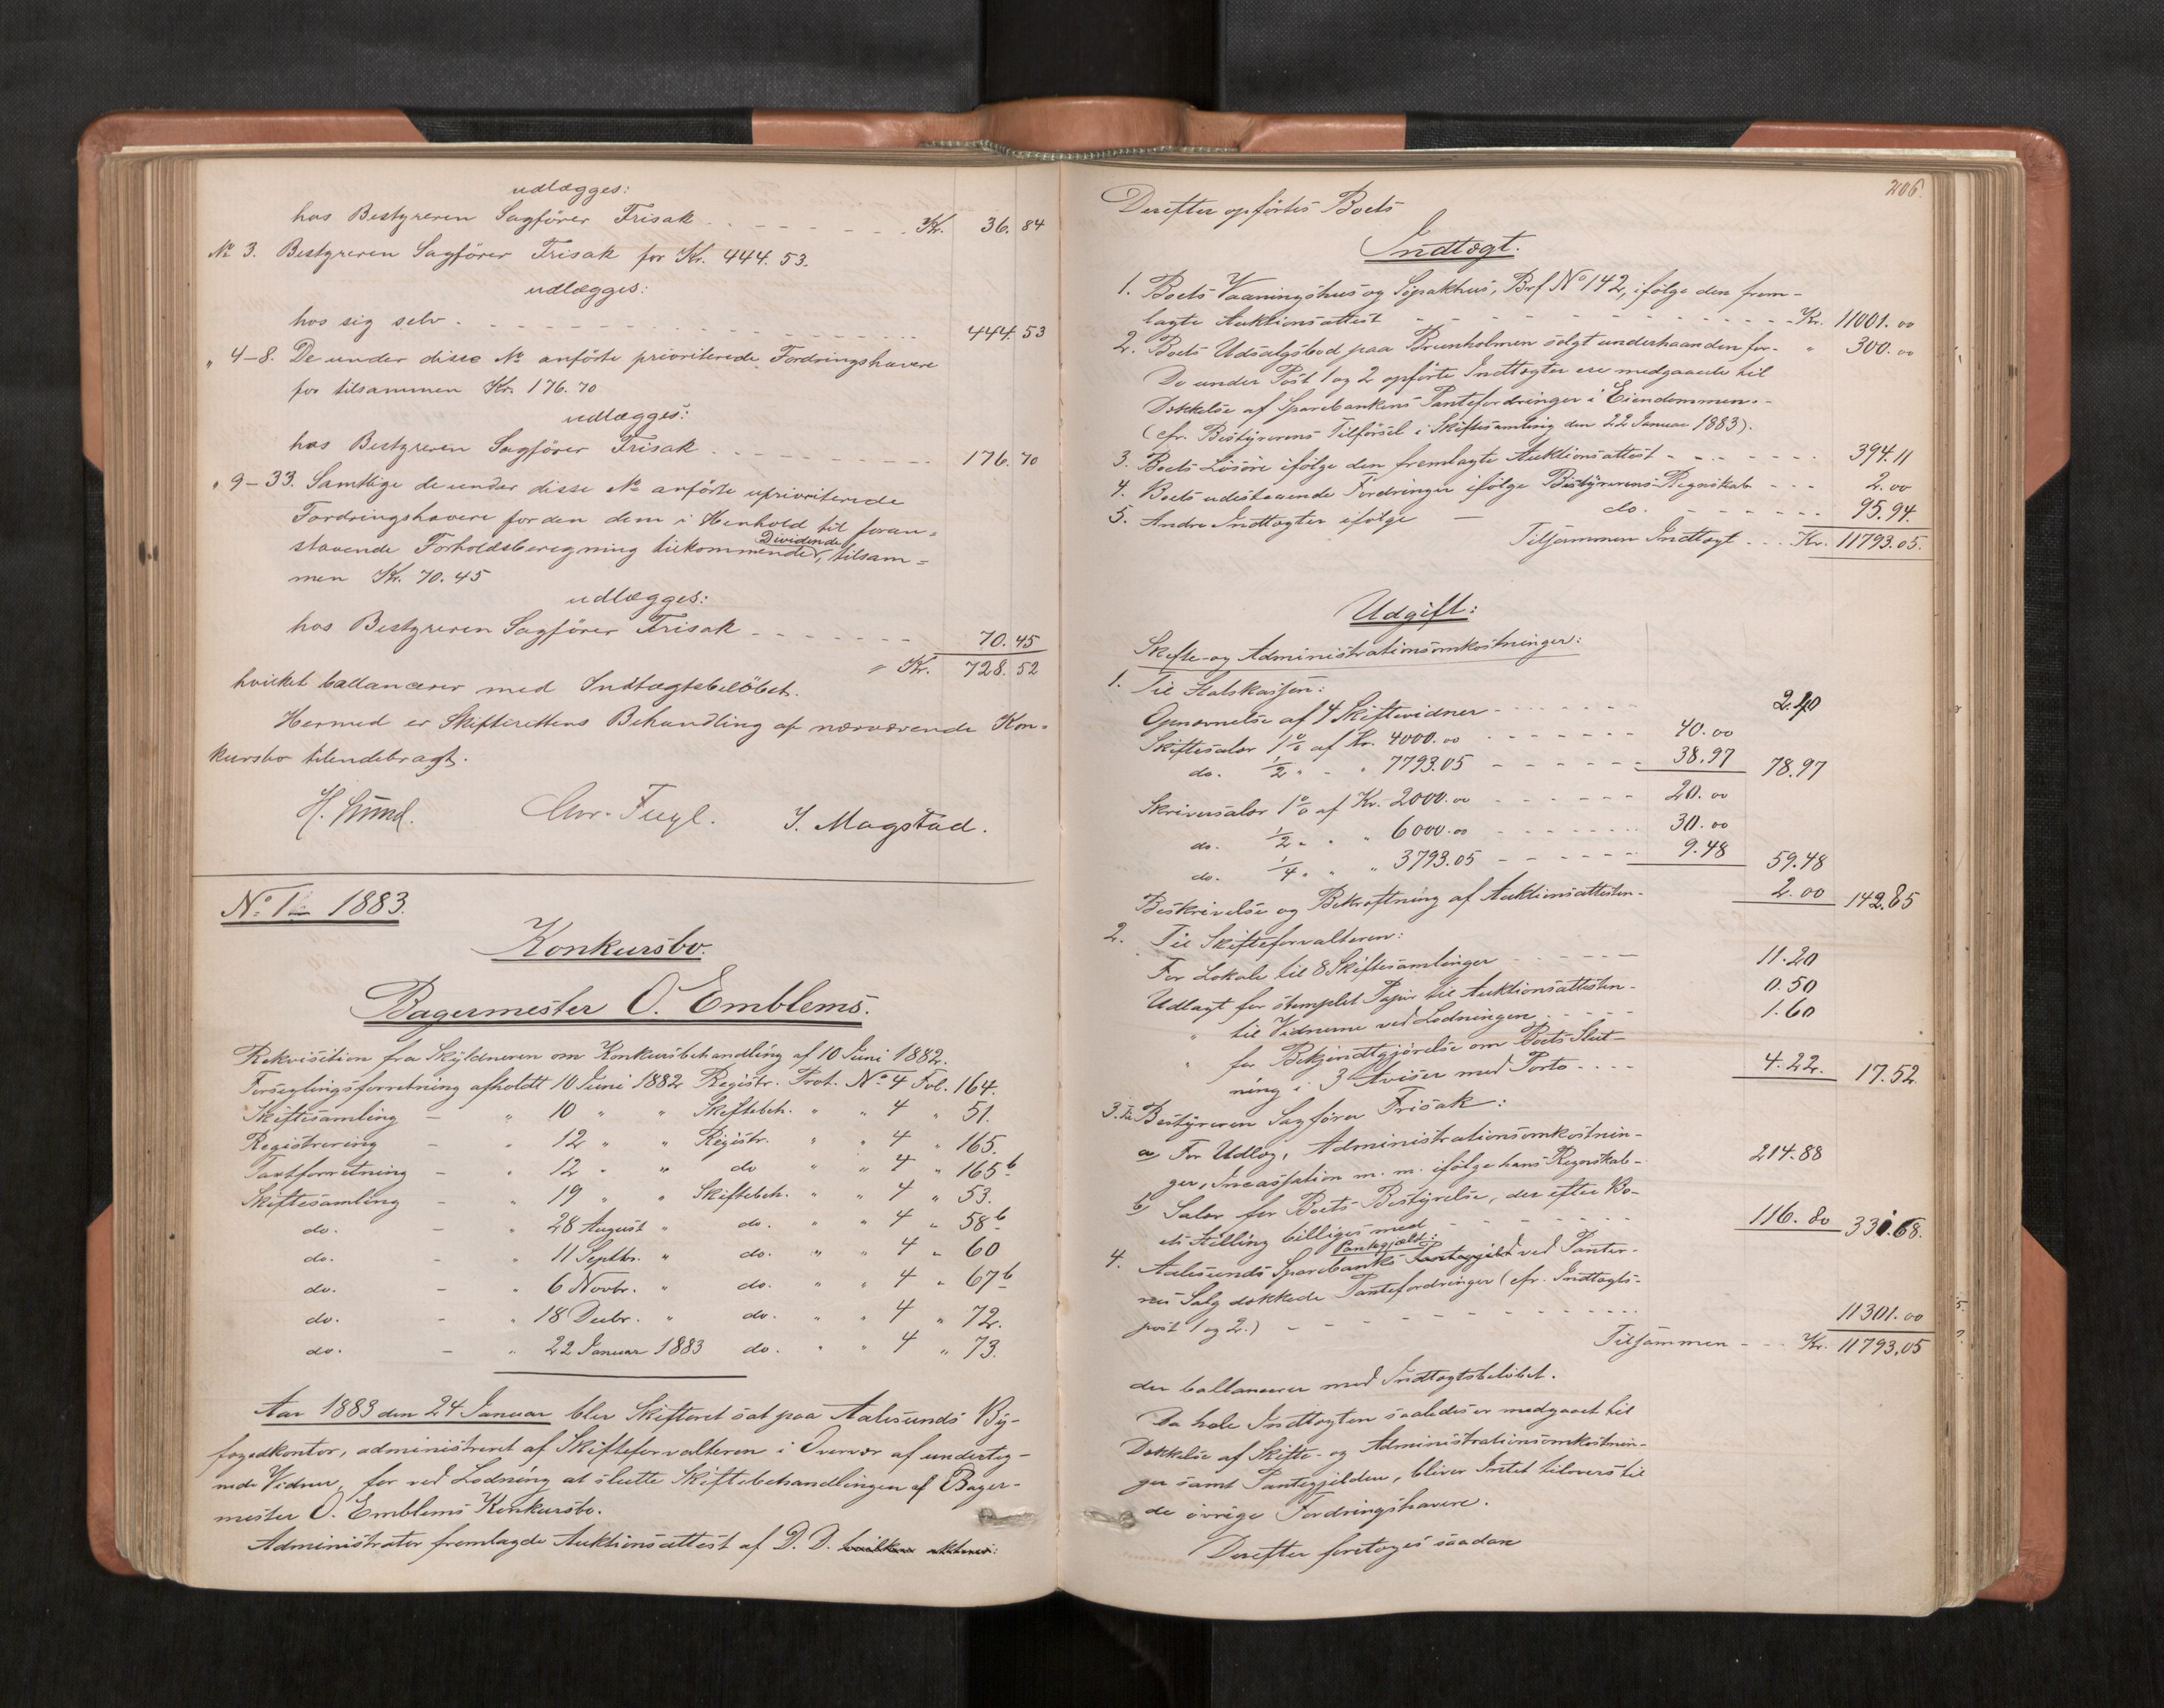 udlægges:
hos Bestyreren Sagfører Frisak - - - - - - - Kr. 36.84
№ 3. Bestyreren Sagfører Frisak for Kr. 444.53.
udlægges:
hos sig selv - - - - - - - - 444.53
" 4-8. De under disse № anførte prioriterede Fordringshavere
for tilsammen Kr. 176.70
udlægges:
hos Bestyreren Sagfører Frisak - - - - - - 176.70
" 9-33. Samtlige de under disse № anførte uprioriterede
Fordringshavere for den dem i Henhold til foran=
staaende Forholdsberegning tilkommende Dividende, tilsam=
men Kr. 70.45
udlægges:
hos Bestyreren Sagfører Frisak - - - - - 70.45
= Kr. 728.52
hvilket ballancerer med Indtægtsbeløbet.
Hermed er Skifterettens Behandling af nærværende Kon=
kursbo tilendebragt.
H. Lund. Chr. Fugl. J. Magstad.
No. 1 - 1883.
Konkursbo.
Bagermester O. Emblems.
Rekvisition fra Skyldneren om Konkursbehandling af 10 Juni 1882.
Forseglingsforretning afholdt 10 Juni 1882 Registr. Prot. No. 4 Fol. 164.
Skiftesamling - " 10 " " Skiftebeh. " " 4 " 51.
Registrering - " 12 " " Registr. " " 4 " 165.
Taxtforretning - " 12 " " do " " 4 " 165b
Skiftesamling - " 19 " " Skiftebeh. " " 4 " 53.
do. - " 28 August " do. " " 4 " 58b
do. - " 11 Septbr. " do. " " 4 " 60
do. - " 6 Novbr. " do. " " 4 " 67b
do. - " 18 Decbr. " do. " " 4 " 72.
do. - " 22 Januar 1883 do. " " 4 " 73.
Aar 1883 den 24 Januar blev Skifteret sat paa Aalesunds By-
fogedkontor, administreret af Skifteforvalteren i Overvær af underteg-
nede Vidner, for ved Lodning at slutte Skiftebehandlingen af Bager-
mester O. Emblems Konkursbo.
Administrator fremlagde Auktionsattest af D. D.
206.
Derefter opførtes Boets
Indtægt.
1. Boets Vaaningshus og Søpakhus, Brf No 142, ifølge den frem-
lagte Auktionsattest - - - - - - Kr. 11001.00
2. Boets Udsalgsbod paa Brunholmen solgt underhaanden for - " 300.00
De under Post 1 og 2 opførte Indtægter ere medgaaede til
Dækkelse af Sparebankens Pantefordringer i Eiendommen. -
(cfr. Bestyrerens Tilførsel i Skiftesamling den 22 Januar 1883).
3. Boets Løsøre ifølge den fremlagte Auktionsattest - - - - - 394.11
4. Boets udestaaende Fordringer ifølge Bestyrerens Regnskab - - - 2.00
5. Andre Indtægter ifølge - do. - - - - - 95.94.
Tilsammen Indtægt - - - Kr. 11793.05.
Udgift:
Skifte- og Administrationsomkostninger:
1. Til Statskassen:
Opnævnelse af 4 Skiftevidner - - - - - - 2.40
Skiftesalær 1 % af Kr. 4000.00 - - - - - - 40.00
do. 1/2 " - " 7793.05 - - - - - - 38.97 78.97
Skriversalær 1 % af Kr. 2000.00 - - - - - 20.00
do. 1/2 " " " 6000.00 - - - - - 30.00
do. 1/4 " " " 3793.05 - - - - - 9.48 59.48
Beskrivelse og Bekræftning af Auktionsattesten - 2.00 142.85
2. Til Skifteforvalteren:
For Lokale til 8 Skiftesamlinger - - - - 11.20
Udlagt for stemplet Papir til Auktionsattesten - 0.50
" til Vidnerne ved Lodningen - - - - 1.60
" for Bekjendtgjørelse om Boets Slut-
ning i 3 Aviser med Porto - - - - 4.22. 17.52.
3. Til Bestyreren Sagfører Frisak:
a) For Udlæg, Administrationsomkostnin-
ger, Incassation m. m. ifølge hans Regnskab - 214.88
b) Salær for Boets Bestyrelse, der efter Bo-
ets Stilling billiges med - - - - - 116.80 331.68.
4. Aalesunds Sparebanks Pantegjæld: ved Panter-
nes Salg dækkede Pantefordringer (cfr. Indtægts-
post 1 og 2.) - - - - - - - - - 11301.00
Tilsammen - - - Kr. 11793.05
der ballancerer med Indtægtsbeløbet.
Da hele Indtægten saaledes er medgaaet til
Dækkelse af Skifte- og Administrationsomkostnin-
ger samt Pantegjælden, bliver Intet tilovers til
de øvrige Fordringshavere.
Derefter foretoges saadan